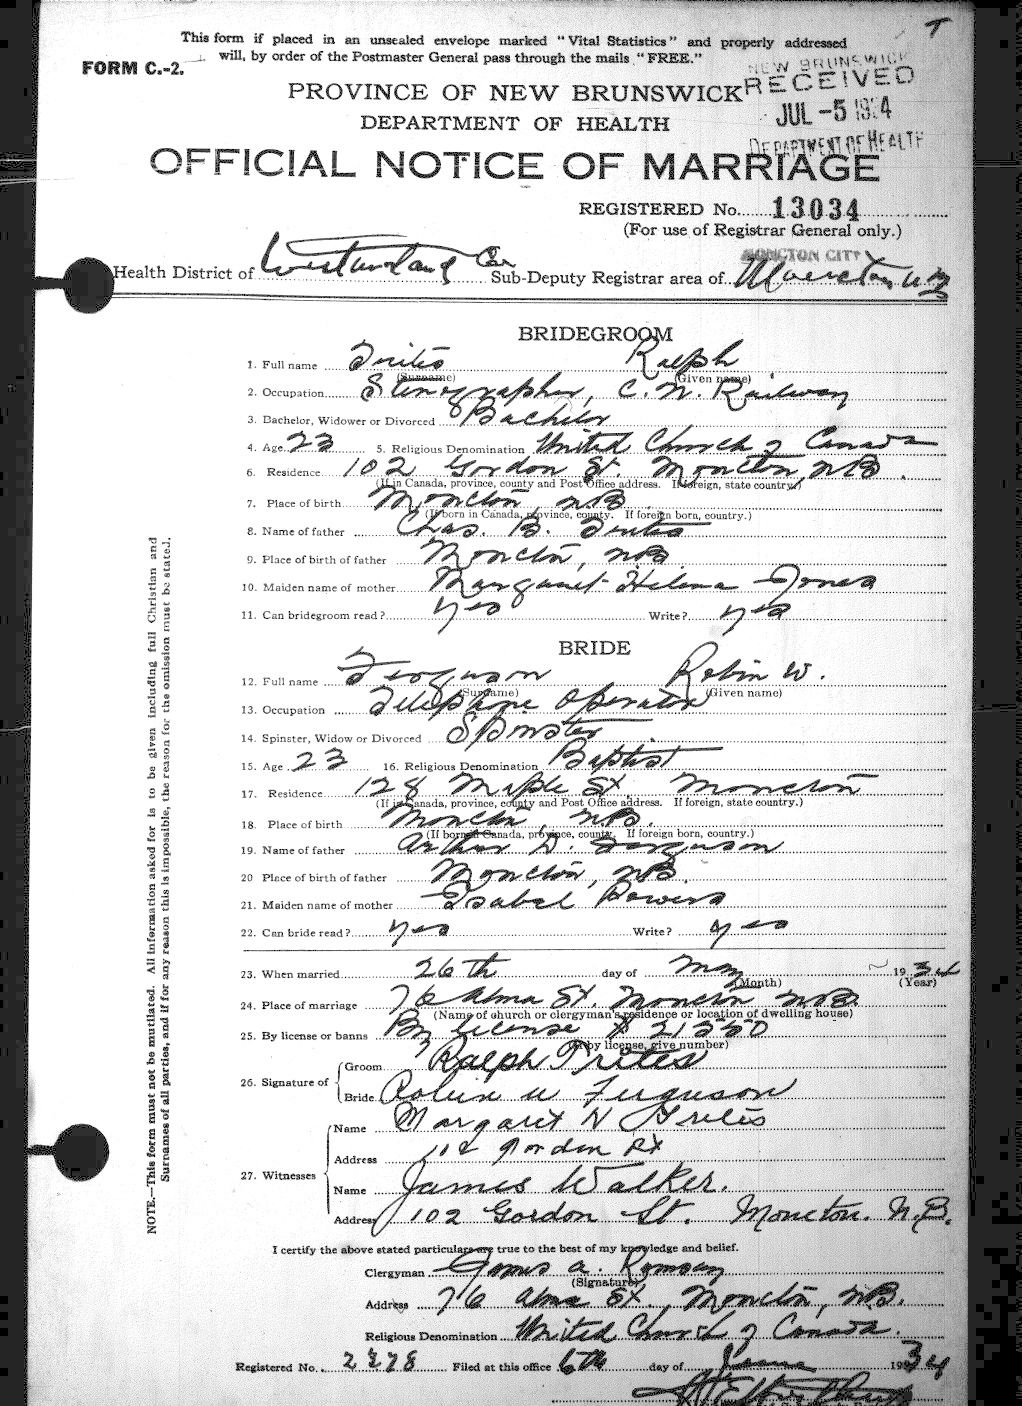 T
This form if placed in an unsealed envelope marked "Vital Statistics" and properly addressed
will, by order of the Postmaster General pass through the mails "FREE."
FORM C.-2.
NEW BRUNSWICK
RECEIVED
JUL -5 1934
DEPARTMENT OF HEALTH
PROVINCE OF NEW BRUNSWICK
DEPARTMENT OF HEALTH
OFFICIAL NOTICE OF MARRIAGE
REGISTERED No. 13034
(For use of Registrar General only.)
MONCTON CITY
Health District of Westmorland Co Sub-Deputy Registrar area of Moncton N.B
BRIDEGROOM
1. Full name Trites Ralph
(Surname) (Given name)
2. Occupation Stenographer, C. N. Railway
3. Bachelor, Widower or Divorced Bachelor
4. Age 23 5. Religious Denomination United Church of Canada
6. Residence 102 Gordon St. Moncton, N.B.
(If in Canada, province, county and Post Office address. If foreign, state country.)
7. Place of birth Moncton, N.B.
(If born in Canada, province, county. If foreign born, country.)
8. Name of father Chas. B. Trites
9. Place of birth of father Moncton, N.B.
10. Maiden name of mother Margaret Helena Jones
11. Can bridegroom read? yes Write? yes
BRIDE
12. Full name Ferguson Robin W.
(Surname) (Given name)
13. Occupation Telephone Operator
14. Spinster, Widow or Divorced Spinster
15. Age 23 16. Religious Denomination Baptist
17. Residence 128 Maple St. Moncton
(If in Canada, province, county and Post Office address. If foreign, state country.)
18. Place of birth Moncton, N.B.
(If born in Canada, province, county. If foreign born, country.)
19. Name of father Arthur D. Ferguson
20 Place of birth of father Moncton, N.B.
21. Maiden name of mother Isabel Powers
22. Can bride read? yes Write? yes
23. When married 26th day of May 1934
(Month) (Year)
24. Place of marriage 76 Alma St. Moncton N.B.
(Name of church or clergyman's residence or location of dwelling house)
25. By license or banns By license # 21550
(If by license, give number)
26. Signature of
Groom Ralph Trites
Bride Robin W Ferguson
27. Witnesses
Name Margaret H Trites
Address 102 Gordon St
Name James Walker.
Address 102 Gordon St. Moncton. N.B.
I certify the above stated particulars are true to the best of my knowledge and belief.
Clergyman James A. Ramsay
(Signature)
Address 76 Alma St., Moncton, N.B.
Religious Denomination United Church of Canada.
Registered No. 2278 Filed at this office 6th day of June 1934
NOTE.—This form must not be mutilated. All information asked for is to be given including full Christian and
Surnames of all parties, and if for any reason this is impossible, the reason for the omission must be stated.